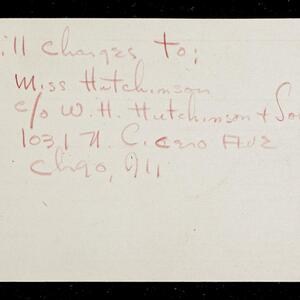 ill charges to;
Miss Hutchinson
c/o W. H. Hutchinson & So
1031 N. Cicero Ave
Chgo, Ill